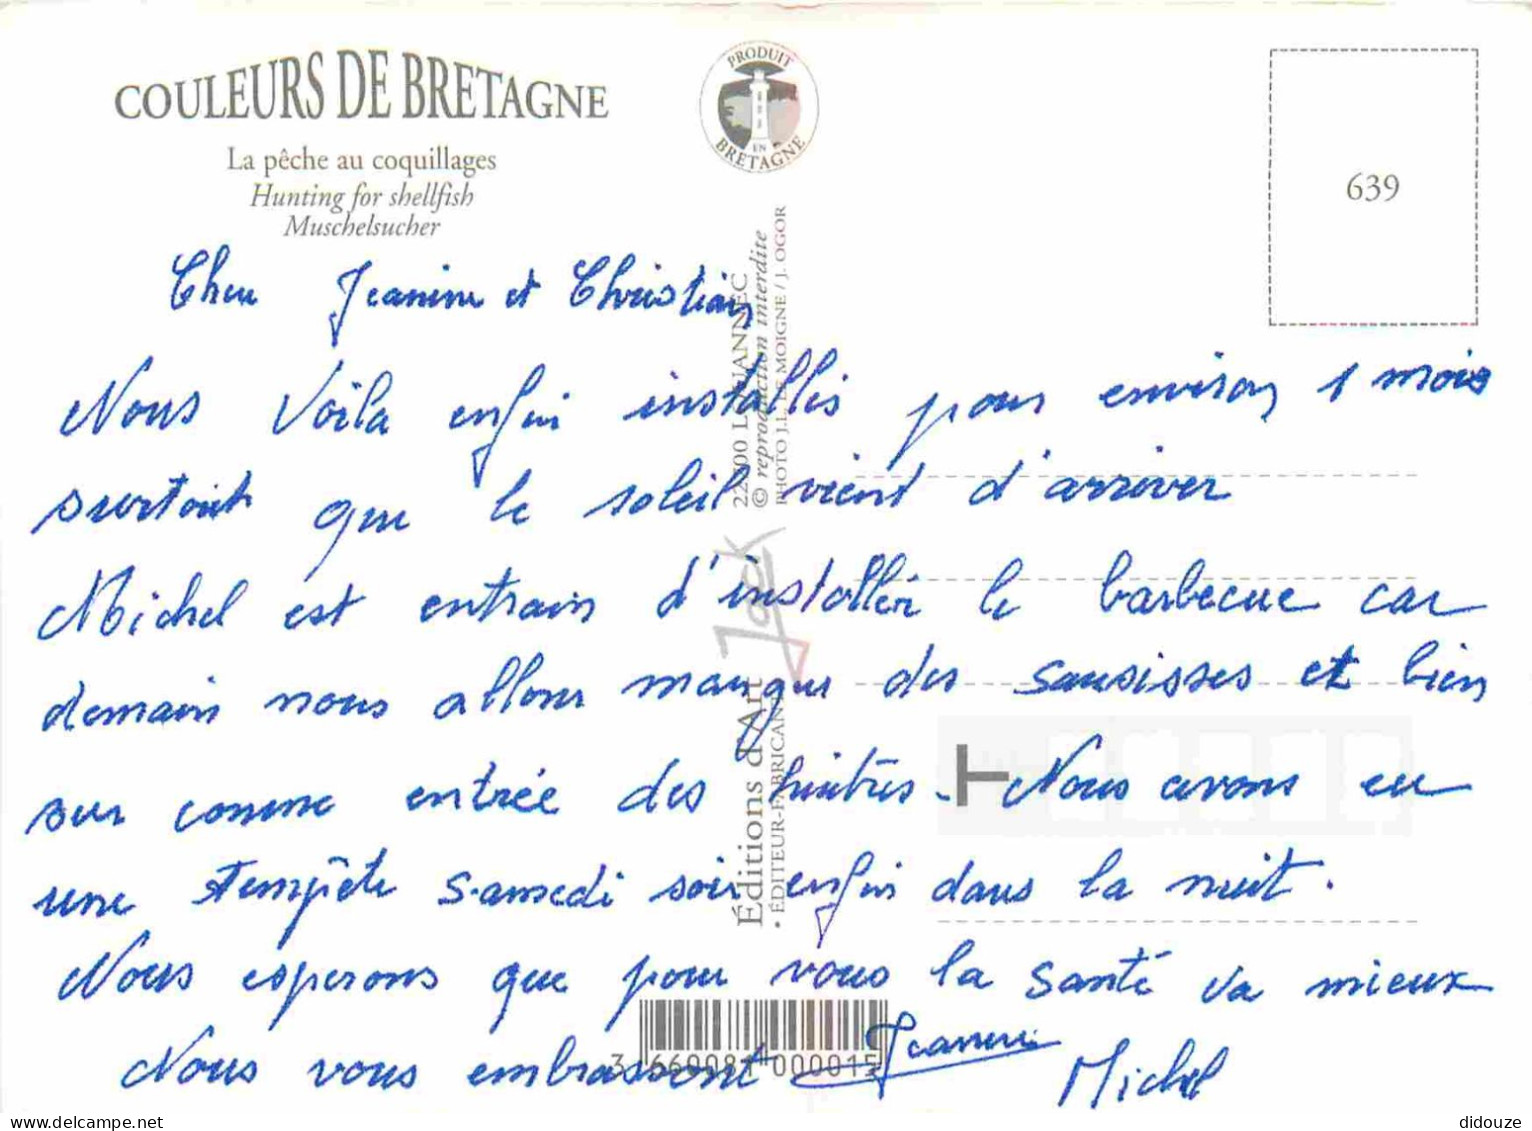 COULEURS DE BRETAGNE
La pêche au coquillages
Hunting for shellfish
Muschelsucher
PRODUIT
EN
BRETAGNE
639
22700 LOUANNEC
© reproduction interdite
PHOTO J.L. LE MOIGNE / J. OGOR
Jack
Éditions d'Art
• ÉDITEUR-FABRICANT
Cher Jeanine et Christian
Nous Voila enfin installés pour environ 1 mois
surtout que le soleil vient d'arriver
Michel est entrain d'installér le barbecue car
demain nous allons manger des sausisses et bien
sur comme entrée des huitrés. Nous avons eu
une tempête samedi soir enfin dans la nuit.
Nous esperons que pour vous la santé va mieux
Nous vous embrassont Jeannine
Michel
3 660081 000015
didouze